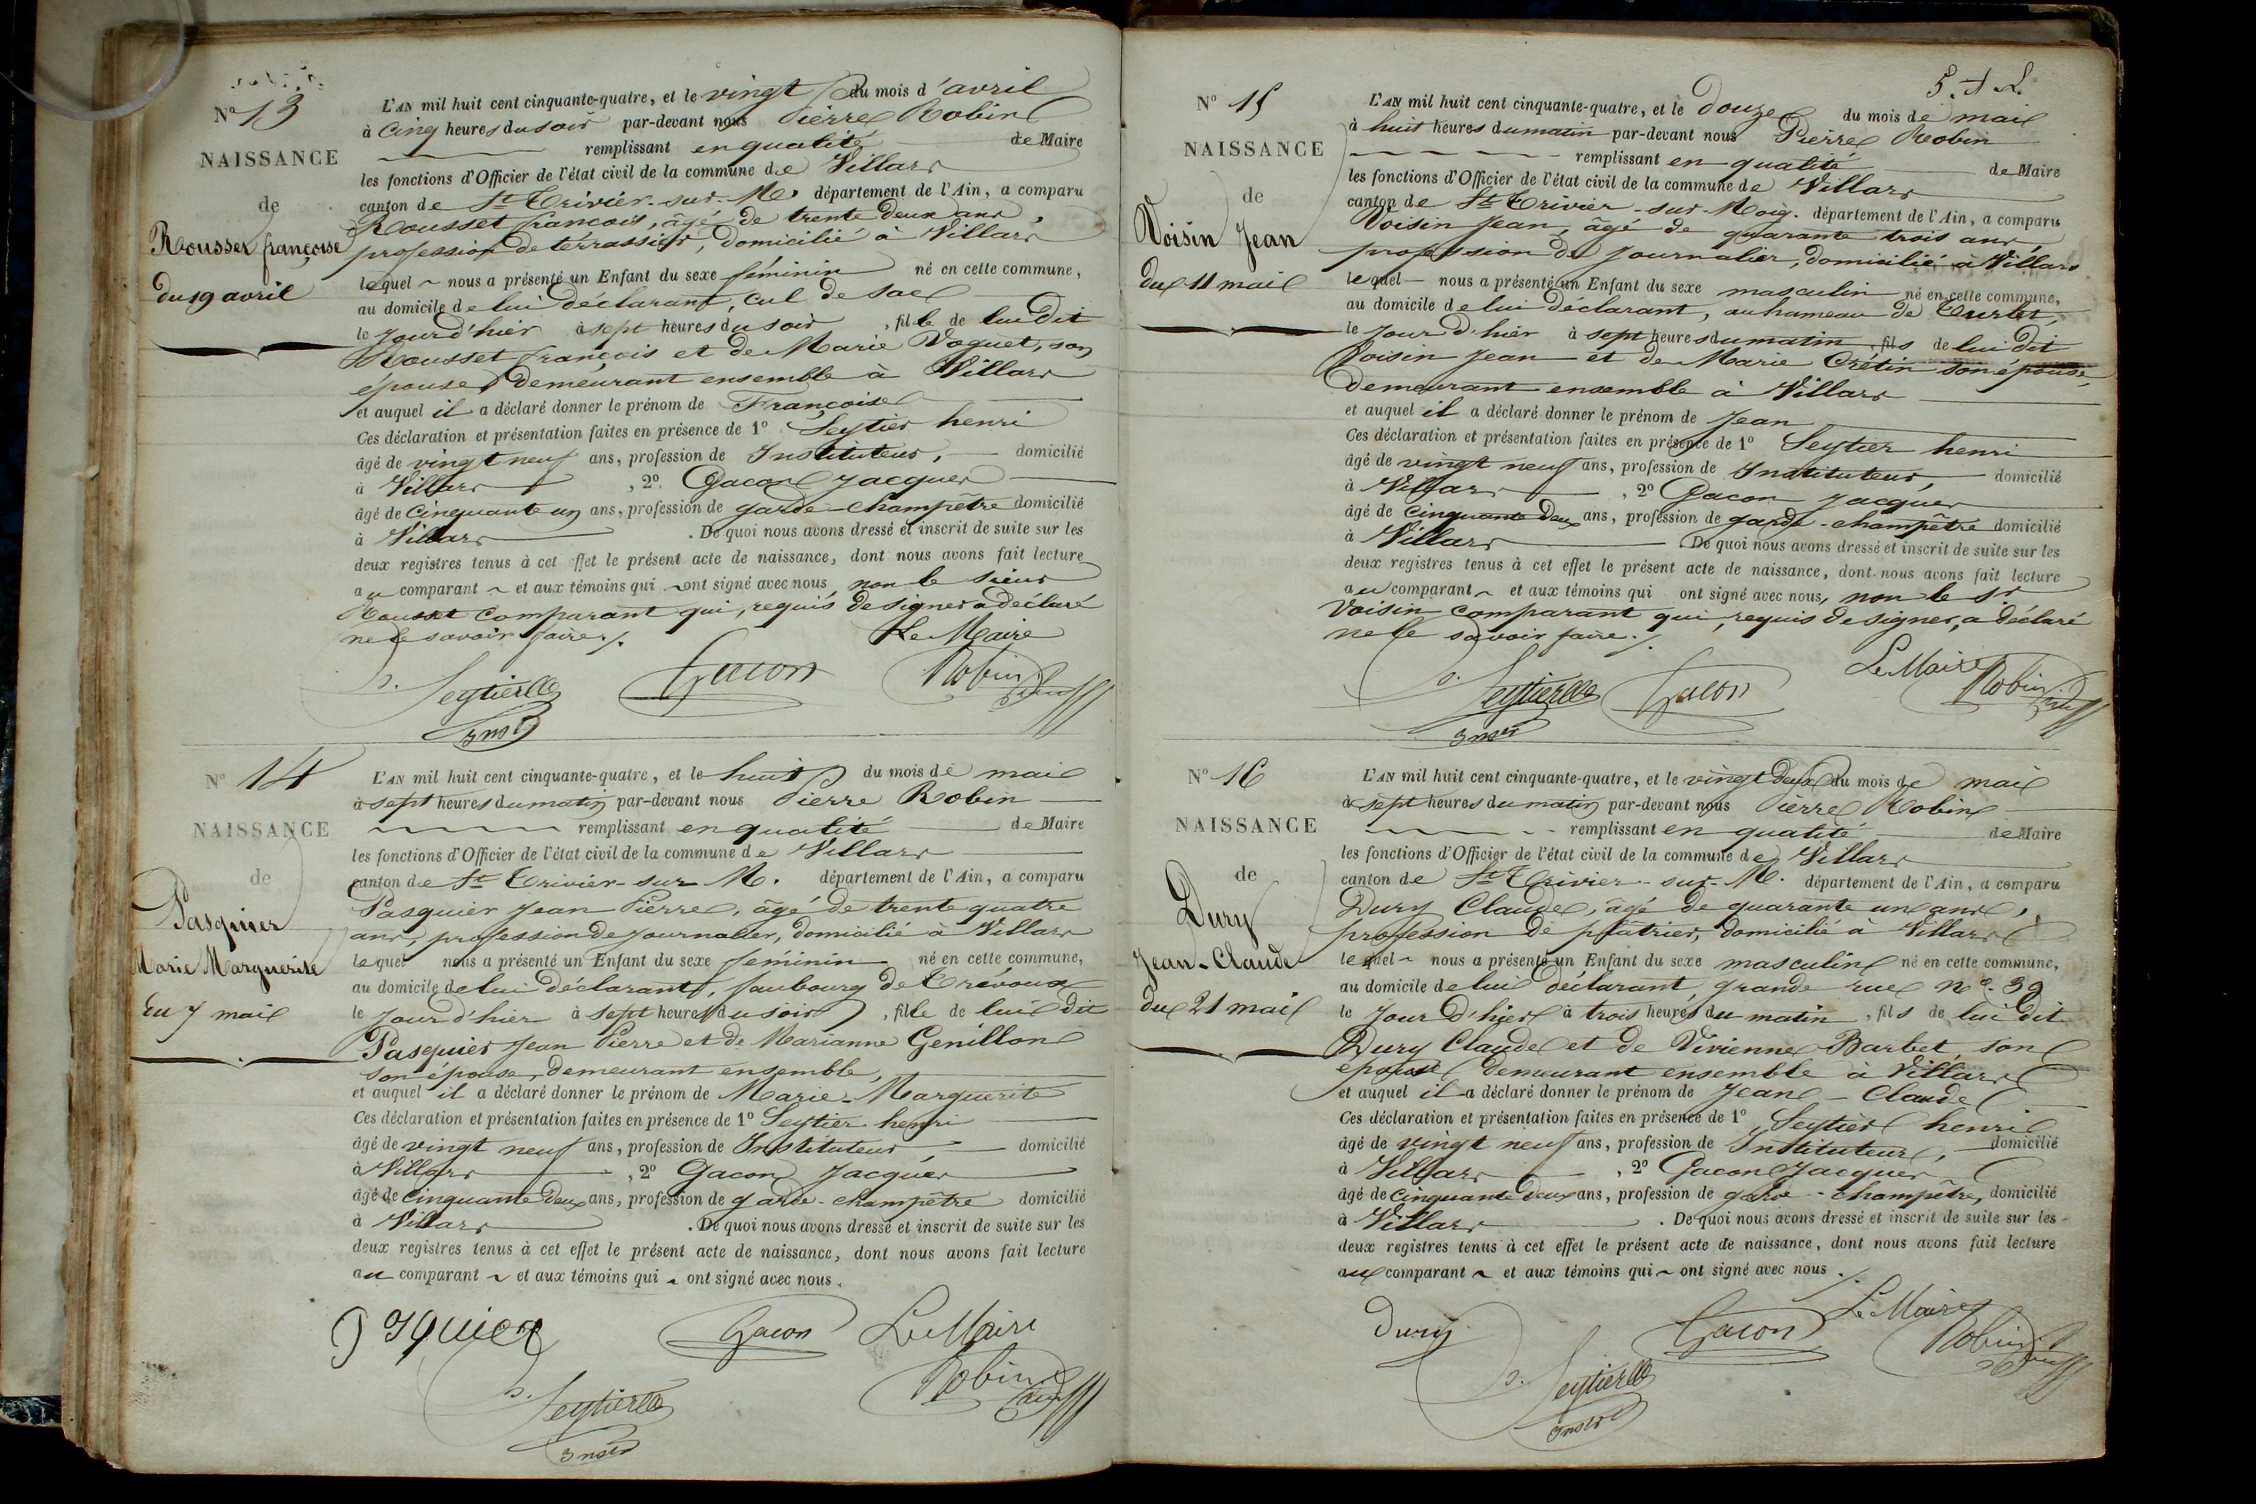 N° 13
NAISSANCE
de
Rousset françoise
du 19 avril
L'AN mil huit cent cinquante-quatre, et le vingt du mois d'avril
à cinq heures du soir par-devant nous Pierre Robin
remplissant en qualité de Maire
les fonctions d'Officier de l'état civil de la commune de Villars
canton de St Trivier-sur-M. département de l'Ain, a comparu
Rousset françois, âgé de trente deux ans,
profession de terrassier, domicilié à Villars
lequel nous a présenté un Enfant du sexe féminin né en cette commune,
au domicile de lui déclarant, cul de sac
le jour d'hier à sept heures du soir, fille de lui dit
Rousset françois et de Marie Voguet, son
épouse, demeurant ensemble à Villars
et auquel il a déclaré donner le prénom de Françoise
Ces déclaration et présentation faites en présence de 1° Seytier henri
âgé de vingt neuf ans, profession de Instituteur, domicilié
à Villars, 2° Gacon Jacques
âgé de cinquante un ans, profession de garde-champêtre domicilié
à Villars. De quoi nous avons dressé et inscrit de suite sur les
deux registres tenus à cet effet le présent acte de naissance, dont nous avons fait lecture
au comparant et aux témoins qui ont signé avec nous non le sieur
Rousset comparant qui, requis de signer a déclaré
ne le savoir faire./.
Le Maire
Seytier
Gacon
Robin
N° 14
NAISSANCE
de
Pasquier
Marie Marguerite
du 7 mai
L'AN mil huit cent cinquante-quatre, et le huit du mois de mai
à sept heures du matin par-devant nous Pierre Robin
remplissant en qualité de Maire
les fonctions d'Officier de l'état civil de la commune de Villars
canton de St Trivier-sur M. département de l'Ain, a comparu
Pasquier Jean Pierre, âgé de trente quatre
ans, profession de journalier, domicilié à Villars
lequel nous a présenté un Enfant du sexe féminin né en cette commune,
au domicile de lui déclarant, faubourg de Trévoux
le jour d'hier à sept heures du soir, fille de lui dit
Pasquier Jean Pierre et de Marianne Genillon
son épouse, demeurant ensemble,
et auquel il a déclaré donner le prénom de Marie-Marguerite
Ces déclaration et présentation faites en présence de 1° Seytier henri
âgé de vingt neuf ans, profession de Instituteur, domicilié
à Villars, 2° Gacon Jacques
âgé de cinquante deux ans, profession de garde-champêtre domicilié
à Villars. De quoi nous avons dressé et inscrit de suite sur les
deux registres tenus à cet effet le présent acte de naissance, dont nous avons fait lecture
au comparant et aux témoins qui ont signé avec nous.
Gacon
Le Maire
Robin
Seytier
N° 15
NAISSANCE
de
Voisin Jean
du 11 mai
L'AN mil huit cent cinquante-quatre, et le douze du mois de mai
à huit heures du matin par-devant nous Pierre Robin
remplissant en qualité de Maire
les fonctions d'Officier de l'état civil de la commune de Villars
canton de St Trivier-sur-Moig. département de l'Ain, a comparu
Voisin Jean, âgé de quarante trois ans,
profession de journalier, domicilié à Villars
lequel nous a présenté un Enfant du sexe masculin né en cette commune,
au domicile de lui déclarant, au hameau de
le jour d'hier à sept heures du matin, fils de lui dit
Voisin Jean et de Marie Crétin son épouse,
demeurant ensemble à Villars
et auquel il a déclaré donner le prénom de Jean
Ces déclaration et présentation faites en présence de 1° Seytier henri
âgé de vingt neuf ans, profession de Instituteur, domicilié
à Villars, 2° Gacon Jacques
âgé de cinquante deux ans, profession de garde-champêtre domicilié
à Villars. De quoi nous avons dressé et inscrit de suite sur les
deux registres tenus à cet effet le présent acte de naissance, dont nous avons fait lecture
au comparant et aux témoins qui ont signé avec nous, non le sr
Voisin comparant qui, requis de signer, a déclaré
ne le savoir faire./.
Le Maire
Seytier
Gacon
Robin
N° 16
NAISSANCE
de
Dury
Jean-Claude
du 21 mai
L'AN mil huit cent cinquante-quatre, et le vingt deux du mois de mai
à sept heures du matin par-devant nous Pierre Robin
remplissant en qualité de Maire
les fonctions d'Officier de l'état civil de la commune de Villars
canton de St Trivier-sur-M. département de l'Ain, a comparu
Dury Claude, âgé de quarante un ans,
profession de platrier, domicilié à Villars
lequel nous a présenté un Enfant du sexe masculin né en cette commune,
au domicile de lui déclarant, grande rue N°. 39
le jour d'hier à trois heures du matin, fils de lui dit
Dury Claude et de Vivienne Barbet son
épouse demeurant ensemble à Villars
et auquel il a déclaré donner le prénom de Jean-Claude
Ces déclaration et présentation faites en présence de 1° Seytier henri
âgé de vingt neuf ans, profession de Instituteur, domicilié
à Villars, 2° Gacon Jacques
âgé de cinquante deux ans, profession de garde-champêtre, domicilié
à Villars. De quoi nous avons dressé et inscrit de suite sur les
deux registres tenus à cet effet le présent acte de naissance, dont nous avons fait lecture
au comparant et aux témoins qui ont signé avec nous./.
Dury
Gacon
Le Maire
Robin
Seytier